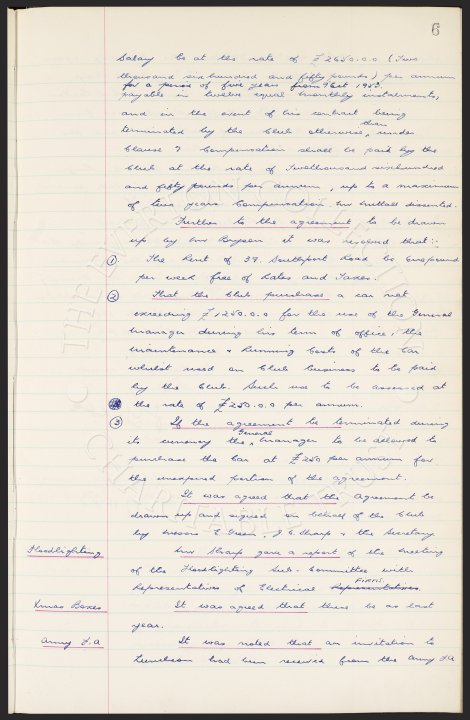 6
Salary be at the rate of £2650.0.0 (Two
thousand six hundred and fifty pounds) per annum
for a period of five years from 1st Oct 1955
payable in twelve equal monthly instalments,
and in the event of his contract being
terminated by the Club otherwise, than under
Clause 7 Compensation shall be paid by the
Club at the rate of Two thousand six hundred
and fifty pounds per annum, up to a maximum
of two years Compensation. Mr Nuttall dissented.
Further to the agreement to be drawn
up by Mr Bryson it was resolved that:-
① The Rent of 39, Southport Road be One pound
per week free of Rates and Taxes.
② That the Club purchase a car not
exceeding £1250.0.0 for the use of the General
Manager during his term of office; the
maintenance & Running Costs of the car
whilst used on Club business to be paid
by the Club. Such use to be assessed at
the rate of £250.0.0 per annum.
③ If the agreement be terminated during
its currency the General Manager to be allowed to
purchase the car at £250 per annum for
the unexpired portion of the agreement.
It was agreed that the Agreement be
drawn up and signed on behalf of the Club
by Messrs E Green, J. C. Sharp & the Secretary
Floodlighting Mr Sharp gave a report of the meeting
of the Floodlighting Sub. Committee with
Representatives of Electrical Representatives. FIRMS.
Xmas Boxes It was agreed that these be as last
year.
Army F.A It was noted that an invitation to
Luncheon had been received from the Army F.A